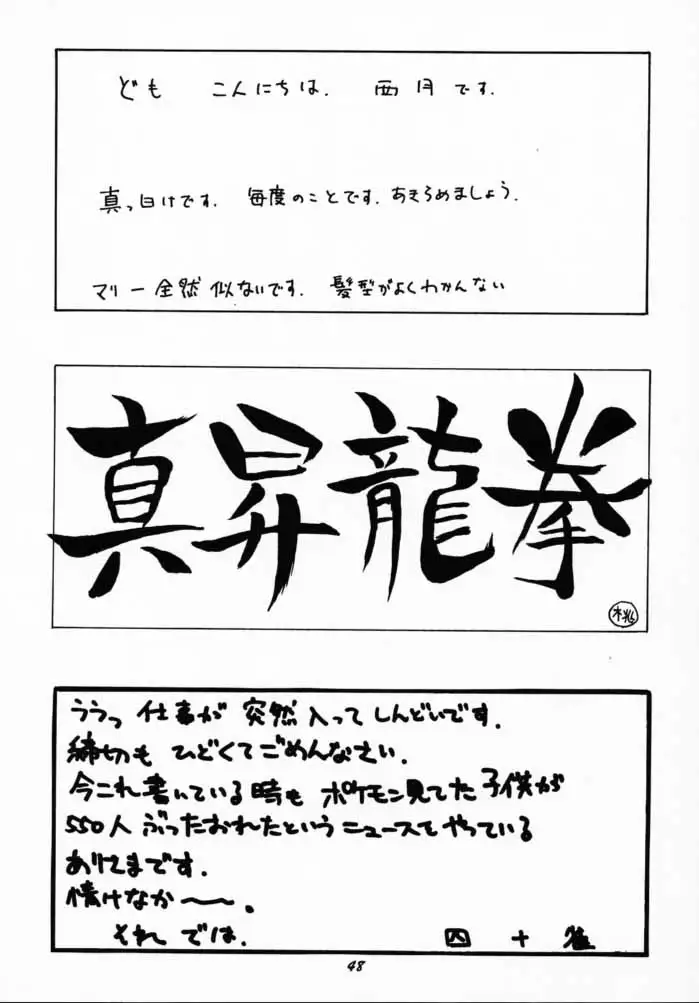 ども こんにちは. 西月です.
真っ白けです. 毎度のことです. あきらめましょう.
マリー全然似ないです. 髪型がよくわかんない
真昇龍拳
桃
ううっ 仕事が 突然入って しんどいです.
締切も ひどくてごめんなさい.
今これ書いている時も ポケモン見てた子供が
550人 ぶったおれたという ニュースをやっている
ありさまです.
情けなか〜〜.
それでは.
四十雀
48